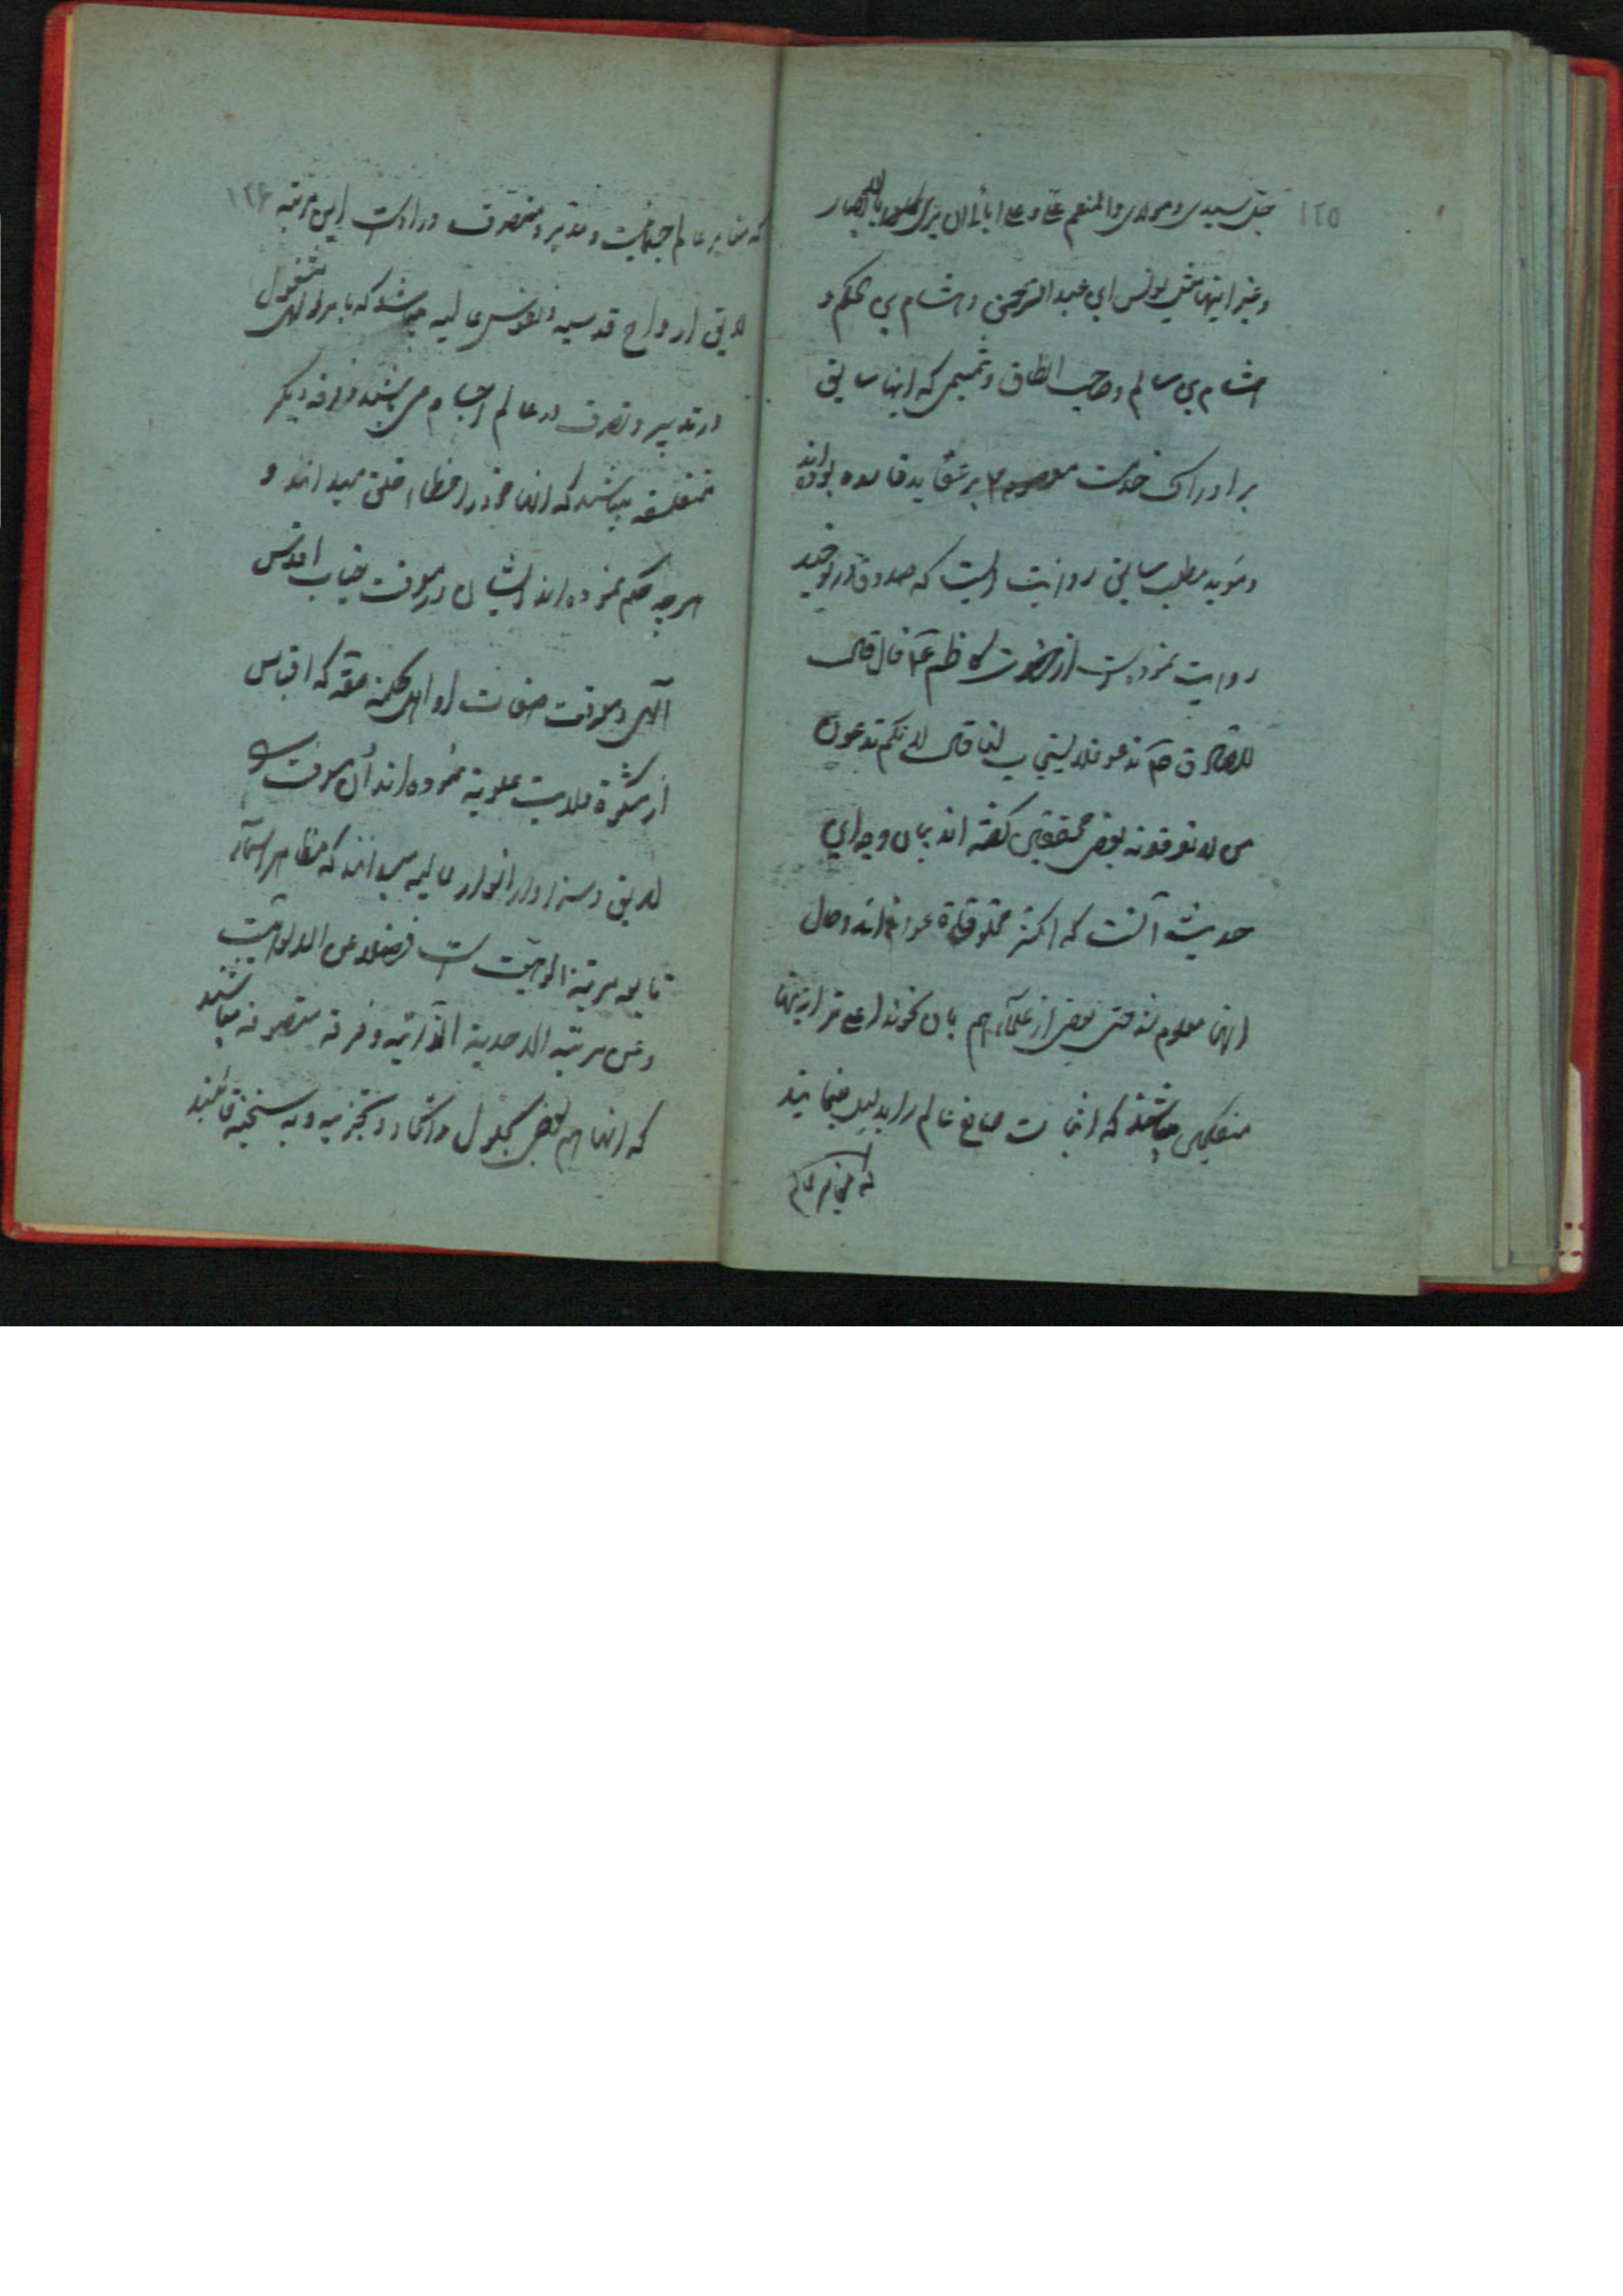 ١٢٥
جل سیدی و مولای والمنعم علی و علی ابائی ان یری بالابصار
و غیر اینها مثل یونس ابن عبد الرحمن و هشام بن حکم و
هشام بن سالم و صاحب الطاق و میثمی که اینها سابق
بر ادراک خدمت معصوم ٢ بر عقاید فاسده بوده‌اند
و مؤید مطلب سابق روایت است که صدوق در توحید
روایت نموده است از حضرت کاظم ع قال قال
للصادق ع ندعو فلا یستجاب لنا قال لانکم تدعون
من لا تعرفونه بعض محققین گفته اند بیان وجه این
حدیث آنست که اکثر مخلوقات عوام‌اند و حال
اینها معلوم شد حتی بعض از علماء هم بیان نمودند اعلی تر اینها
متکلمین میباشند که اثبات صانع عالم را بدلیل مینمایند
که مغایر عالم
١٢۶
که مغایر عالم جسمانیت و مدبر و متصرف در اوست این مرتبه
لایق ارواح قدسیه و نفوس عالیه میباشد که بامر الهی مشغول
در تدبیر و تصرف در عالم اجسام می‌باشند و فرقه دیگر
متفلسفه میباشند که اینها خود را اعظم خلق میدانند و
هرچه حکم نموده‌اند ایشان در معرفت جناب اقدس
الهی و معرفت صفات او اهل حکمت حقه که اقتباس
از مشکوة ولایت علویه نموده‌اند آن معرفت را
لایق و سزاوار انوار عالیه میدانند که مظاهر اسماء
تابعه مرتبة الوهیت است فضلا عن الالوهیت
و عن مرتبة الاحدیة الذاتیه و فرقه متصوفه میباشند
که اینها هم بعض بحلول و اتحاد و تجزیه و به سنخیه قائلند